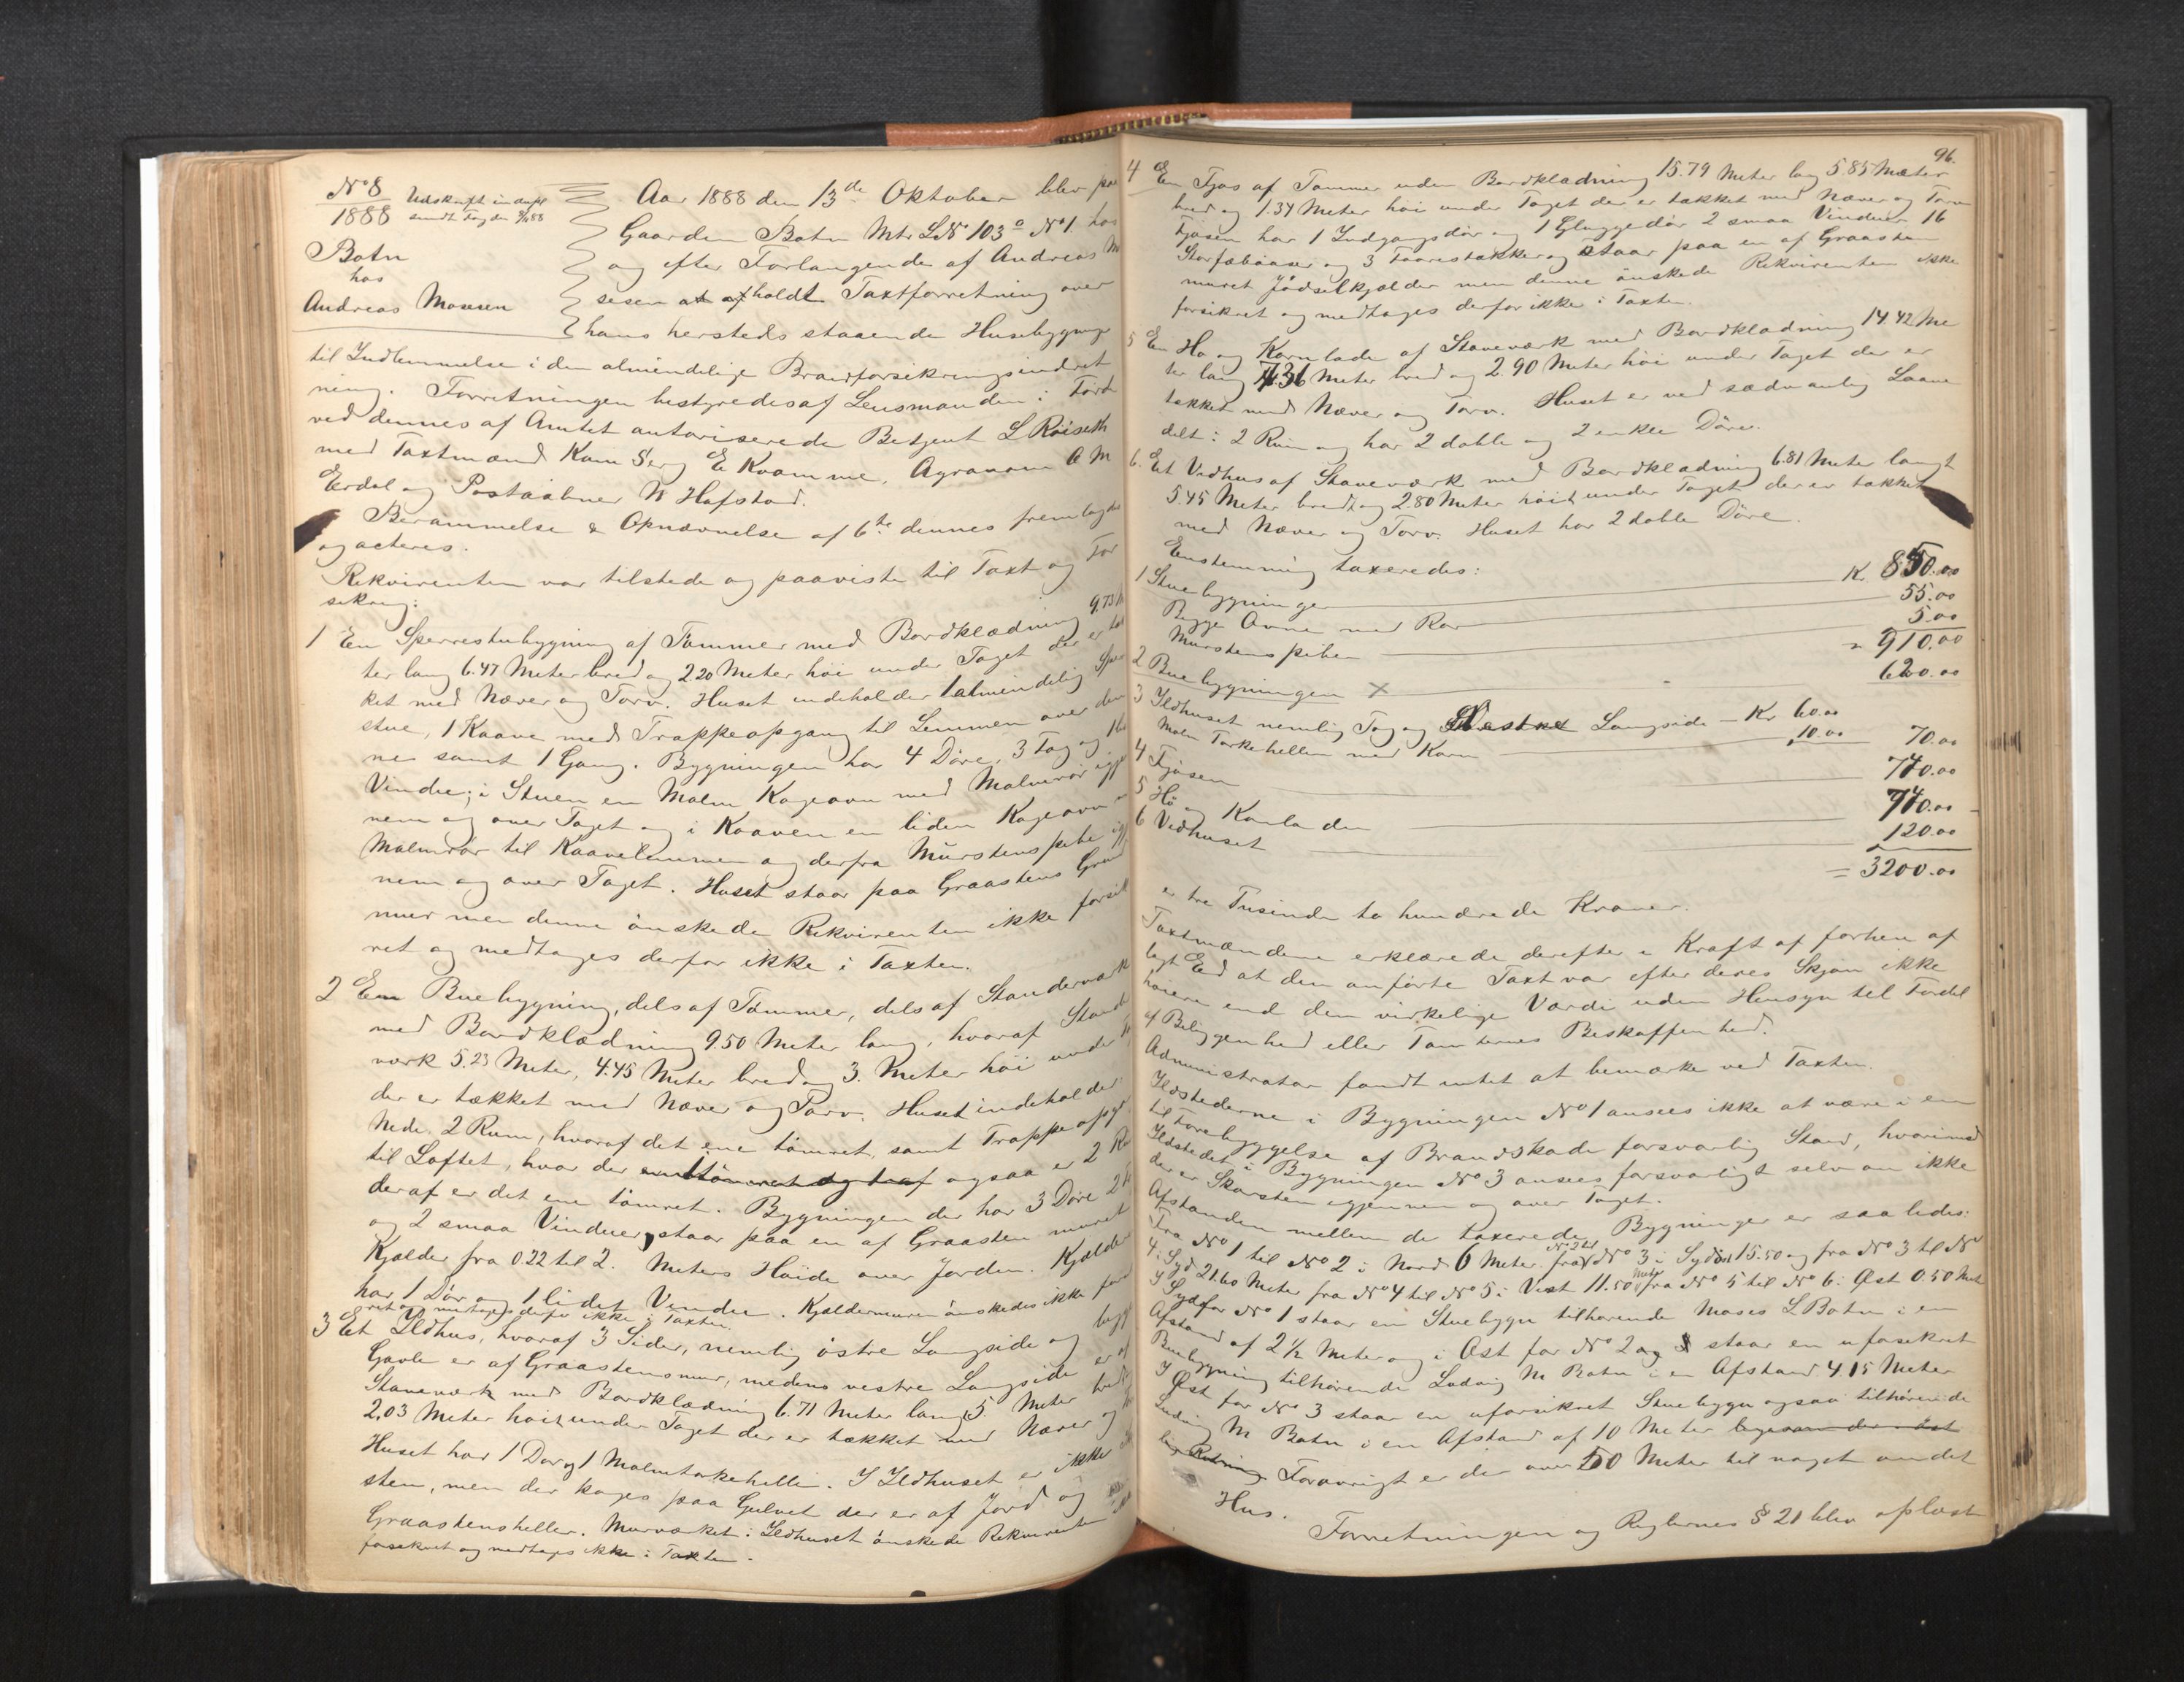 No 8
1888
Udskrift in dupl
sendt Fogden 9/11 88
Botn
hos
Andreas Mosesen
Aar 1888 den 13de Oktober blev paa
Gaarden Botn Mtr LNo 103a No 1 hos
og efter Forlangende af Andreas Mo
sesen at afholdt Taxtforretning over
hans hersteds staaende Husebygninger
til Indlemmelse i den almindelige Brandforsikringsindret
ning. Forretningen bestyredes af Lensmanden i Førde
ved dennes af Amtet autoriserede Betjent L Røiseth
med Taxtmænd Kam Serg E Kvamme, Agronom O M
Erdal og Postaabner N Hafstad.
Berammelse & Opnævnelse af 6te dennes fremlagdes
og acteres.
Rekvirenten var tilstede og paaviste til Taxt og For
sikring:
1 En Sperrestubygning af Tømmer med Bordklædning 9.73 Me
ter lang 6.47 Meter bred og 2.20 Meter høi under Taget der er tæk
ket med Næver og Torv. Huset indeholder 1 almindelig Sperre
stue, 1 Kaave med Trappeopgang til Lemmen over den
ne samt 1 Gang. Bygningen har 4 Døre, 3 Fag og 1
Vindue; i Stuen en Malm Kogeovn med Malmrør igjen
nem og over Taget og i Kaaven en liden Kogeovn
Malmrør til Kaavelemmen og derfra Murstenspibe igjen
nem og over Taget. Huset staar paa Graastens Grund
mur men denne ønskede Rekvirenten ikke forsik
ret og medtages derfor ikke i Taxten.
2 En Buebygning, dels af Tømmer, dels af Standerværk
med Bordklædning 9.50 Meter lang, hvoraf Stander
værk 5.23 Meter, 4.45 Meter bred og 3. Meter høi under
der er tækket med Næver og Torv. Huset indeholder
Nede. 2 Rum, hvoraf det ene tømret, samt Trappeopgang
til Loftet, hvor der ogsaa er 2 Rum
deraf er det ene tømret. Bygningen der har 3 Døre 2
og 2 smaa Vinduer, staar paa en af Graasten muret
Kjælder fra 0.22 til 2. Meters Høide over Jorden. Kjælderen
har 1 Dør og 1 lidet Vindue. Kjældermuren ønskedes ikke forsik
ret og medtages derfor ikke i Taxten.
3 Et Ildhus, hvoraf 3 Sider, nemlig østre Langside og begge
Gavle er af Graastensmur, medens vestre Langside er af
Staveværk med Bordklædning 6.71 Meter lang 5. Meter bredt
2.03 Meter høit under Taget der er tækket med Næver og Torv
Huset har 1 Dør og 1 Malmtørkehelle. I Ildhuset er ikke
sten, men der koges paa Gulvet der er af Jord og
Graastensheller. Murværket i Ildhuset ønskede Rekvirenten
forsikret og medtages ikke i Taxten.
96.
4 En Fjøs af Tømmer uden Bordklædning 15.79 Meter lang 5.85 Meter
bred og 1.34 Meter høi under Taget der er tækket med Næver og Torv
Fjøsen har 1 Indgangsdør og 1 Gluggedør 2 smaa Vinduer 16
Storfæbaaser og 3 Faarestakker og staar paa en af Graasten
muret Jødselkjælder men denne ønskede Rekvirenten ikke
forsikret og medtages derfor ikke i Taxten.
5 En Hø og Kornlade af Staveværk med Bordklædning 14.42 Me
ter lang 7.36 Meter bred og 2.90 Meter høi under Taget der er
tækket med Næver og Torv. Huset er ved sædvanlig Laave
delt i 2 Rum og har 2 doble og 2 enkle Døre.
6. Et Vedhus af Staveværk med Bordklædning 6.81 Meter langt
5.45 Meter bredt og 2.80 Meter høit under Taget der er tækket
med Næver og Torv. Huset har 2 doble Døre.
Eenstemmig taxeredes:
1 Stuebygningen K. 850.00
Begge Ovne med Rør 55.00
Murstenspiben 5.00
= 910.00
2 Buebygningen × 620.00
3 Ildhuset nemlig Tag og Vestre Langside – Kr 60.00
Malm Tørkehellen med Karm 10.00 70.00
4 Fjøsen 740.00
5 Hø og Kornladen 740.00
6 Vedhuset 120.00
= 3200.00
er tre Tusinde to hundrede Kroner.
Taxtmændene erklærede derefter i Kraft af forhen af
lagt Eed at den anførte Taxt var efter deres Skjøn ikke
høiere end den virkelige Værdi uden Hensyn til Fordel
af Beliggenhed eller Tomternes Beskaffenhed.
Administrator fandt intet at bemærke ved Taxten.
Ildstederne i Bygningen No 1 ansees ikke at være i en
til Forebyggelse af Brandskade forsvarlig Stand, hvorimod
Ildstedet i Bygningen No 3 ansees forsvarligt selv om ikke
der er Skorsten igjennem og over Taget.
Afstanden mellem de taxerede Bygninger er saaledes:
Fra No 1 til No 2 i Nord 6 Meter. fra No 2 til No 3 i Sydøst 15.50 og fra No 3 til No
4 i Syd 21.60 Meter fra No 4 til No 5 i Vest 11.50 Meter fra No 5 til No 6 i Øst 0.50 Met
I Syd for No 1 staar en Stuebygn tilhørende Moses L Botn i en
Afstand af 2½ Meter og i Øst for No 2 og 3 staar en uforsikret
Buebygning tilhørende Ludvig M Botn i en Afstand 4.15 Meter
I Øst for No 3 staar en uforsikret Stuebygn ogsaa tilhørende
Ludvig M Botn i en Afstand af 10 Meter
Forøvrigt er der over 50 Meter til noget andet
Hus.
Forretningen og Reglernes § 21 blev oplæst